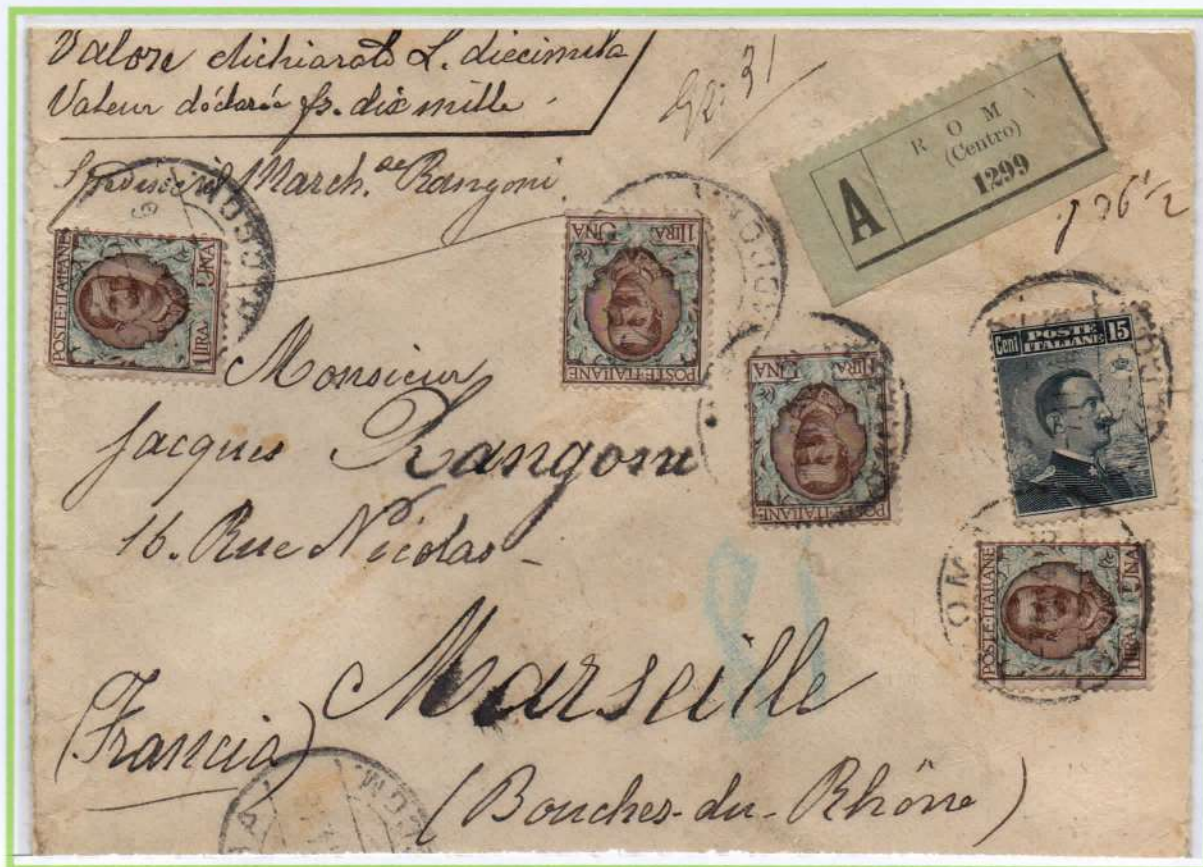 Valore dichiarato L. diecimila
Valeur déclarée fr. dix mille.
March. Rangoni
gr. 31
R O M A
(Centro)
A
1299
POSTE·ITALIANE
1 LIRA UNA
POSTE·ITALIANE
1 LIRA UNA
POSTE·ITALIANE
1 LIRA UNA
Cent POSTE ITALIANE 15
POSTE·ITALIANE
1 LIRA UNA
Monsieur
Jacques Rangoni
16. Rue Nicolas-
Marseille
(Francia)
(Bouches-du-Rhône)